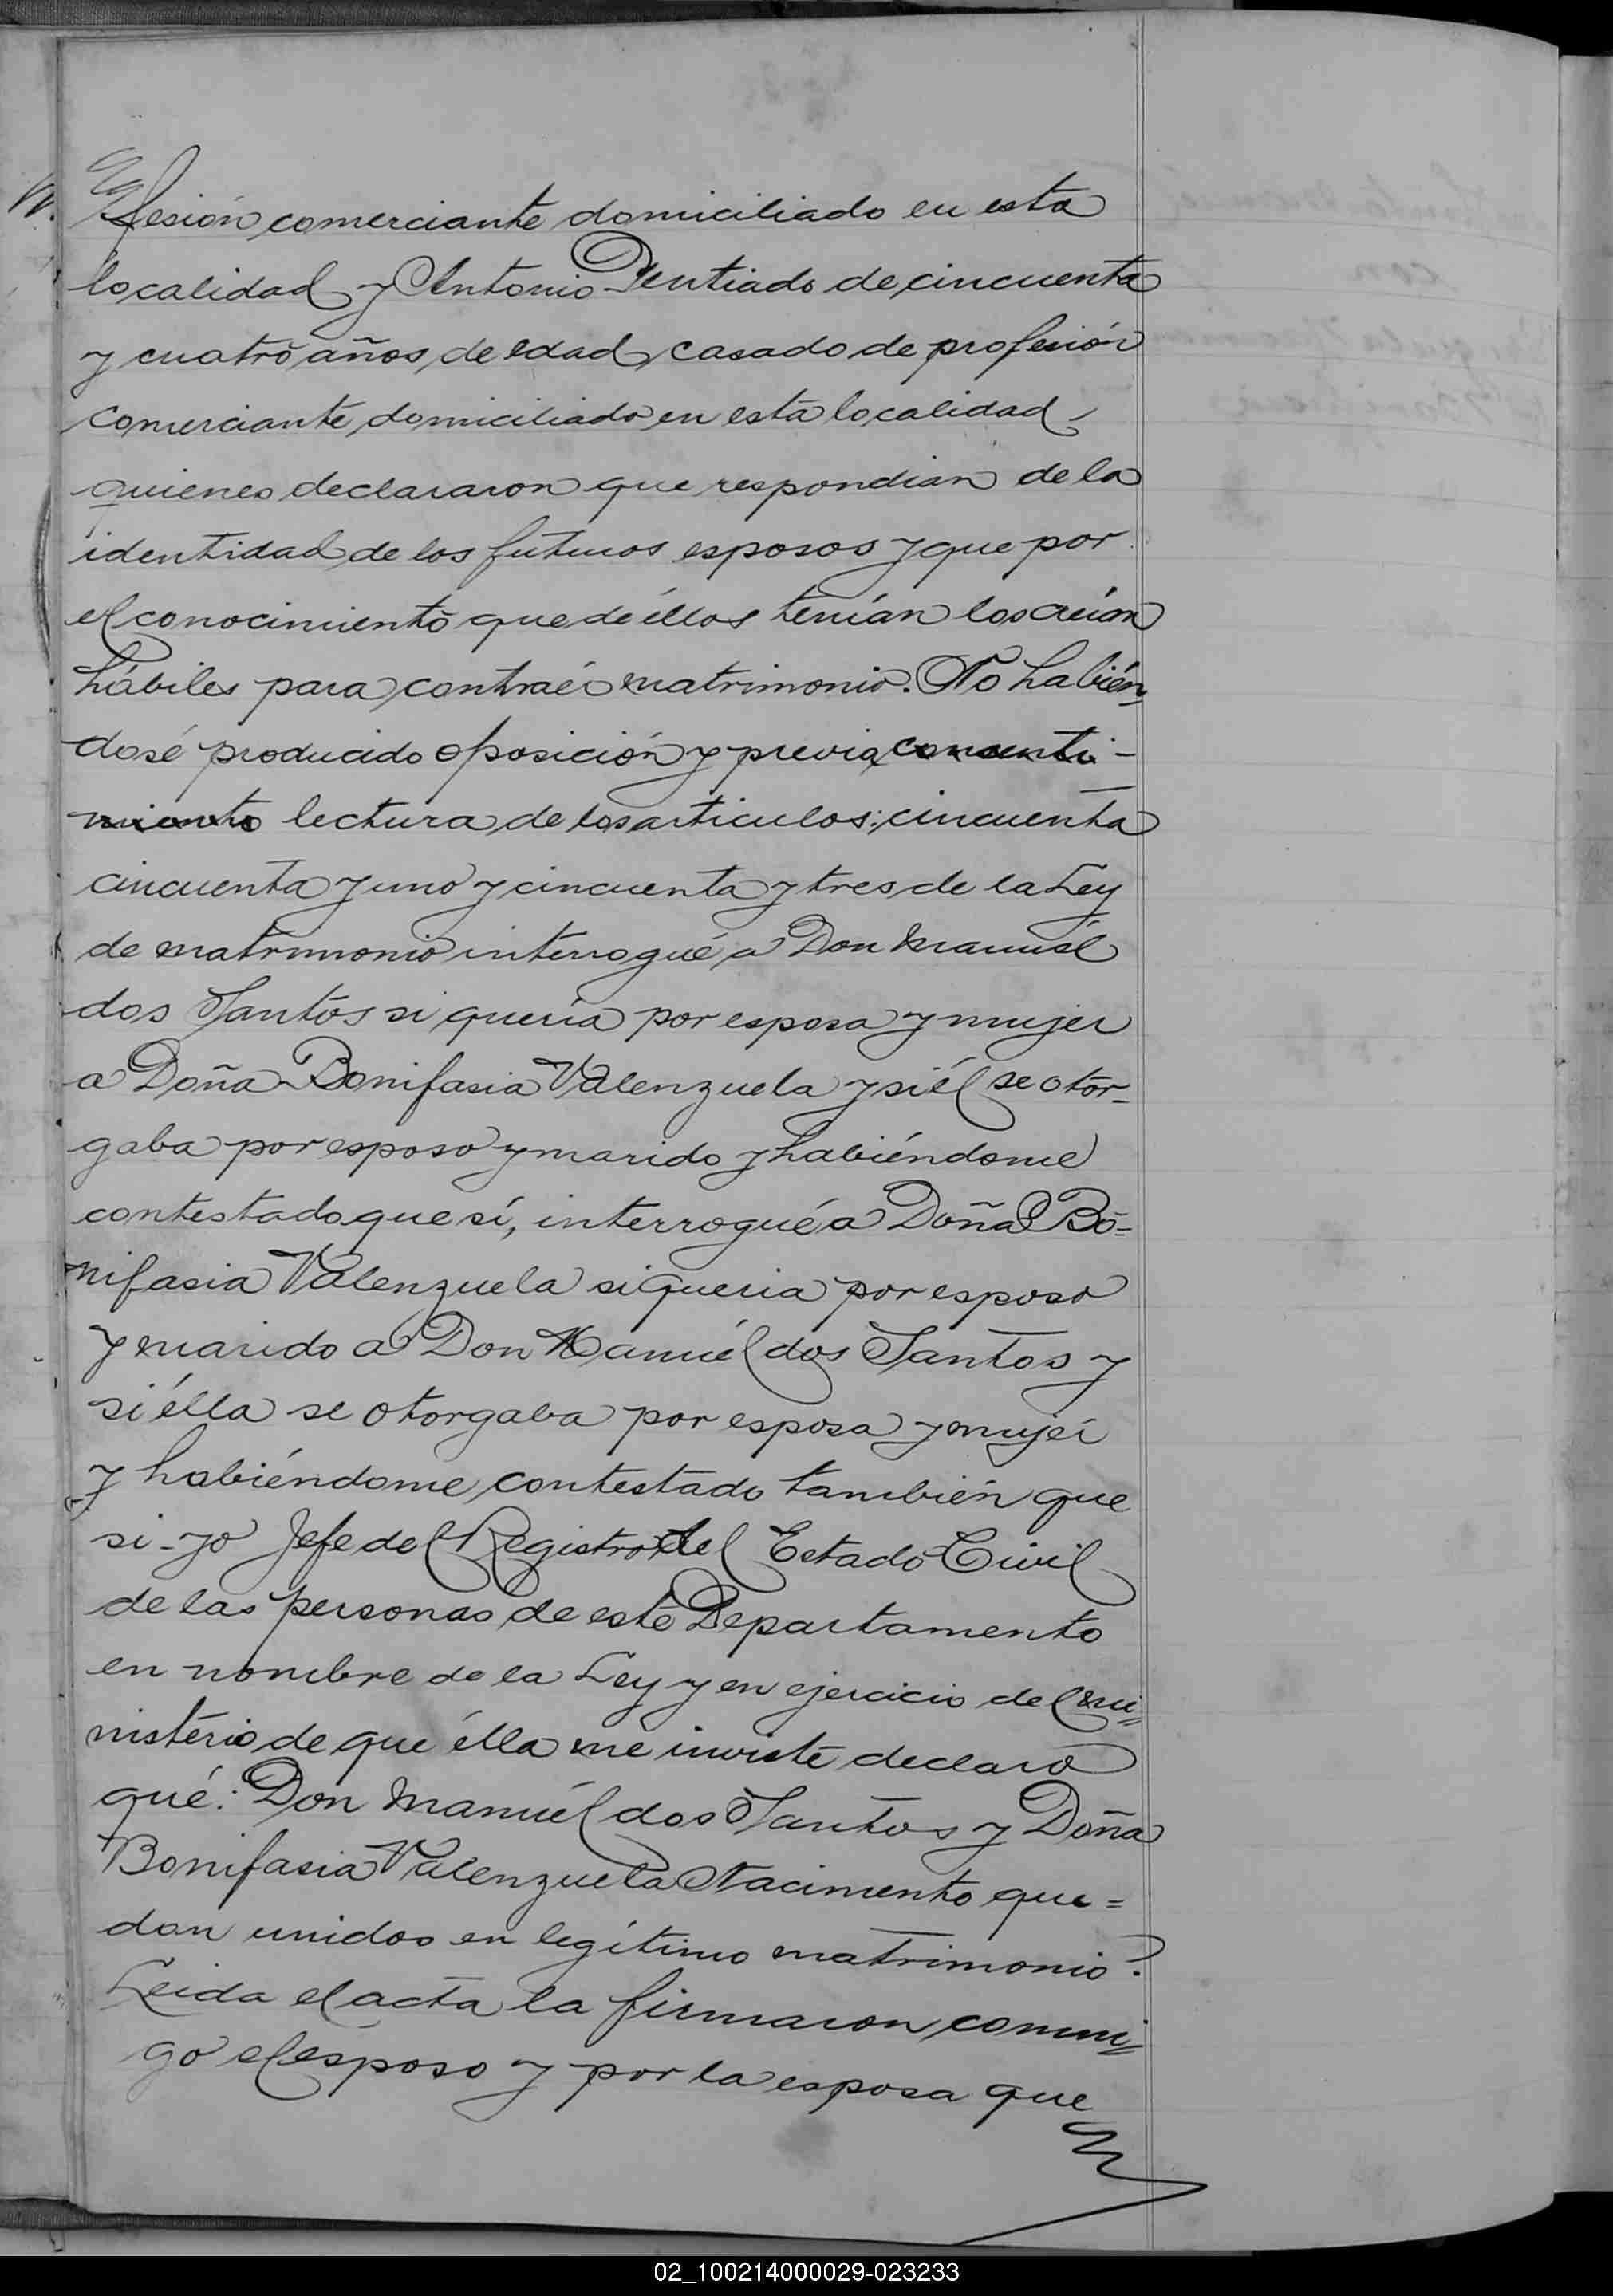 fesión comerciante domiciliado en esta
localidad y Antonio de cincuenta
y cuatro años de edad casado de profesión
comerciante domiciliado en esta localidad
quienes declararon que respondian de la
identidad de los futuros esposos y que por
el conocimiento que de éllos tenían los creían
hábiles para contraér matrimonio. No habién„
dosé producido oposición y previa consenti-
miento lectura de los articulos: cincuenta
cincuenta y uno y cincuenta y tres de la Ley
de matrimonio interrogué a Don Manuél
dos Santos si quería por esposa y mujer
a Doña Bonifasia Valenzuela y si él se otor-
gaba por esposo y marido y habiéndome
contestado que sí, interrogué a Doña Bo=
nifasia Valenzuela si queria por esposo
y marido a Don Manuél dos Santos y
si élla se otorgaba por esposa y mujer
y habiéndome contestado también que
si-yo Jefe del Registro del Estado Civil
de las personas de este Departamento
en nombre de la Ley y en ejercicio del mi„
nistério de que élla me inviste declaro
qué: Don Manuél dos Santos y Doña
Bonifasia Valenzuela Nacimento que=
dan unidos en legítimo matrimonio.
Leida el acta la firmaron conmi„
go el esposo y por la esposa que
02_100214000029-023233